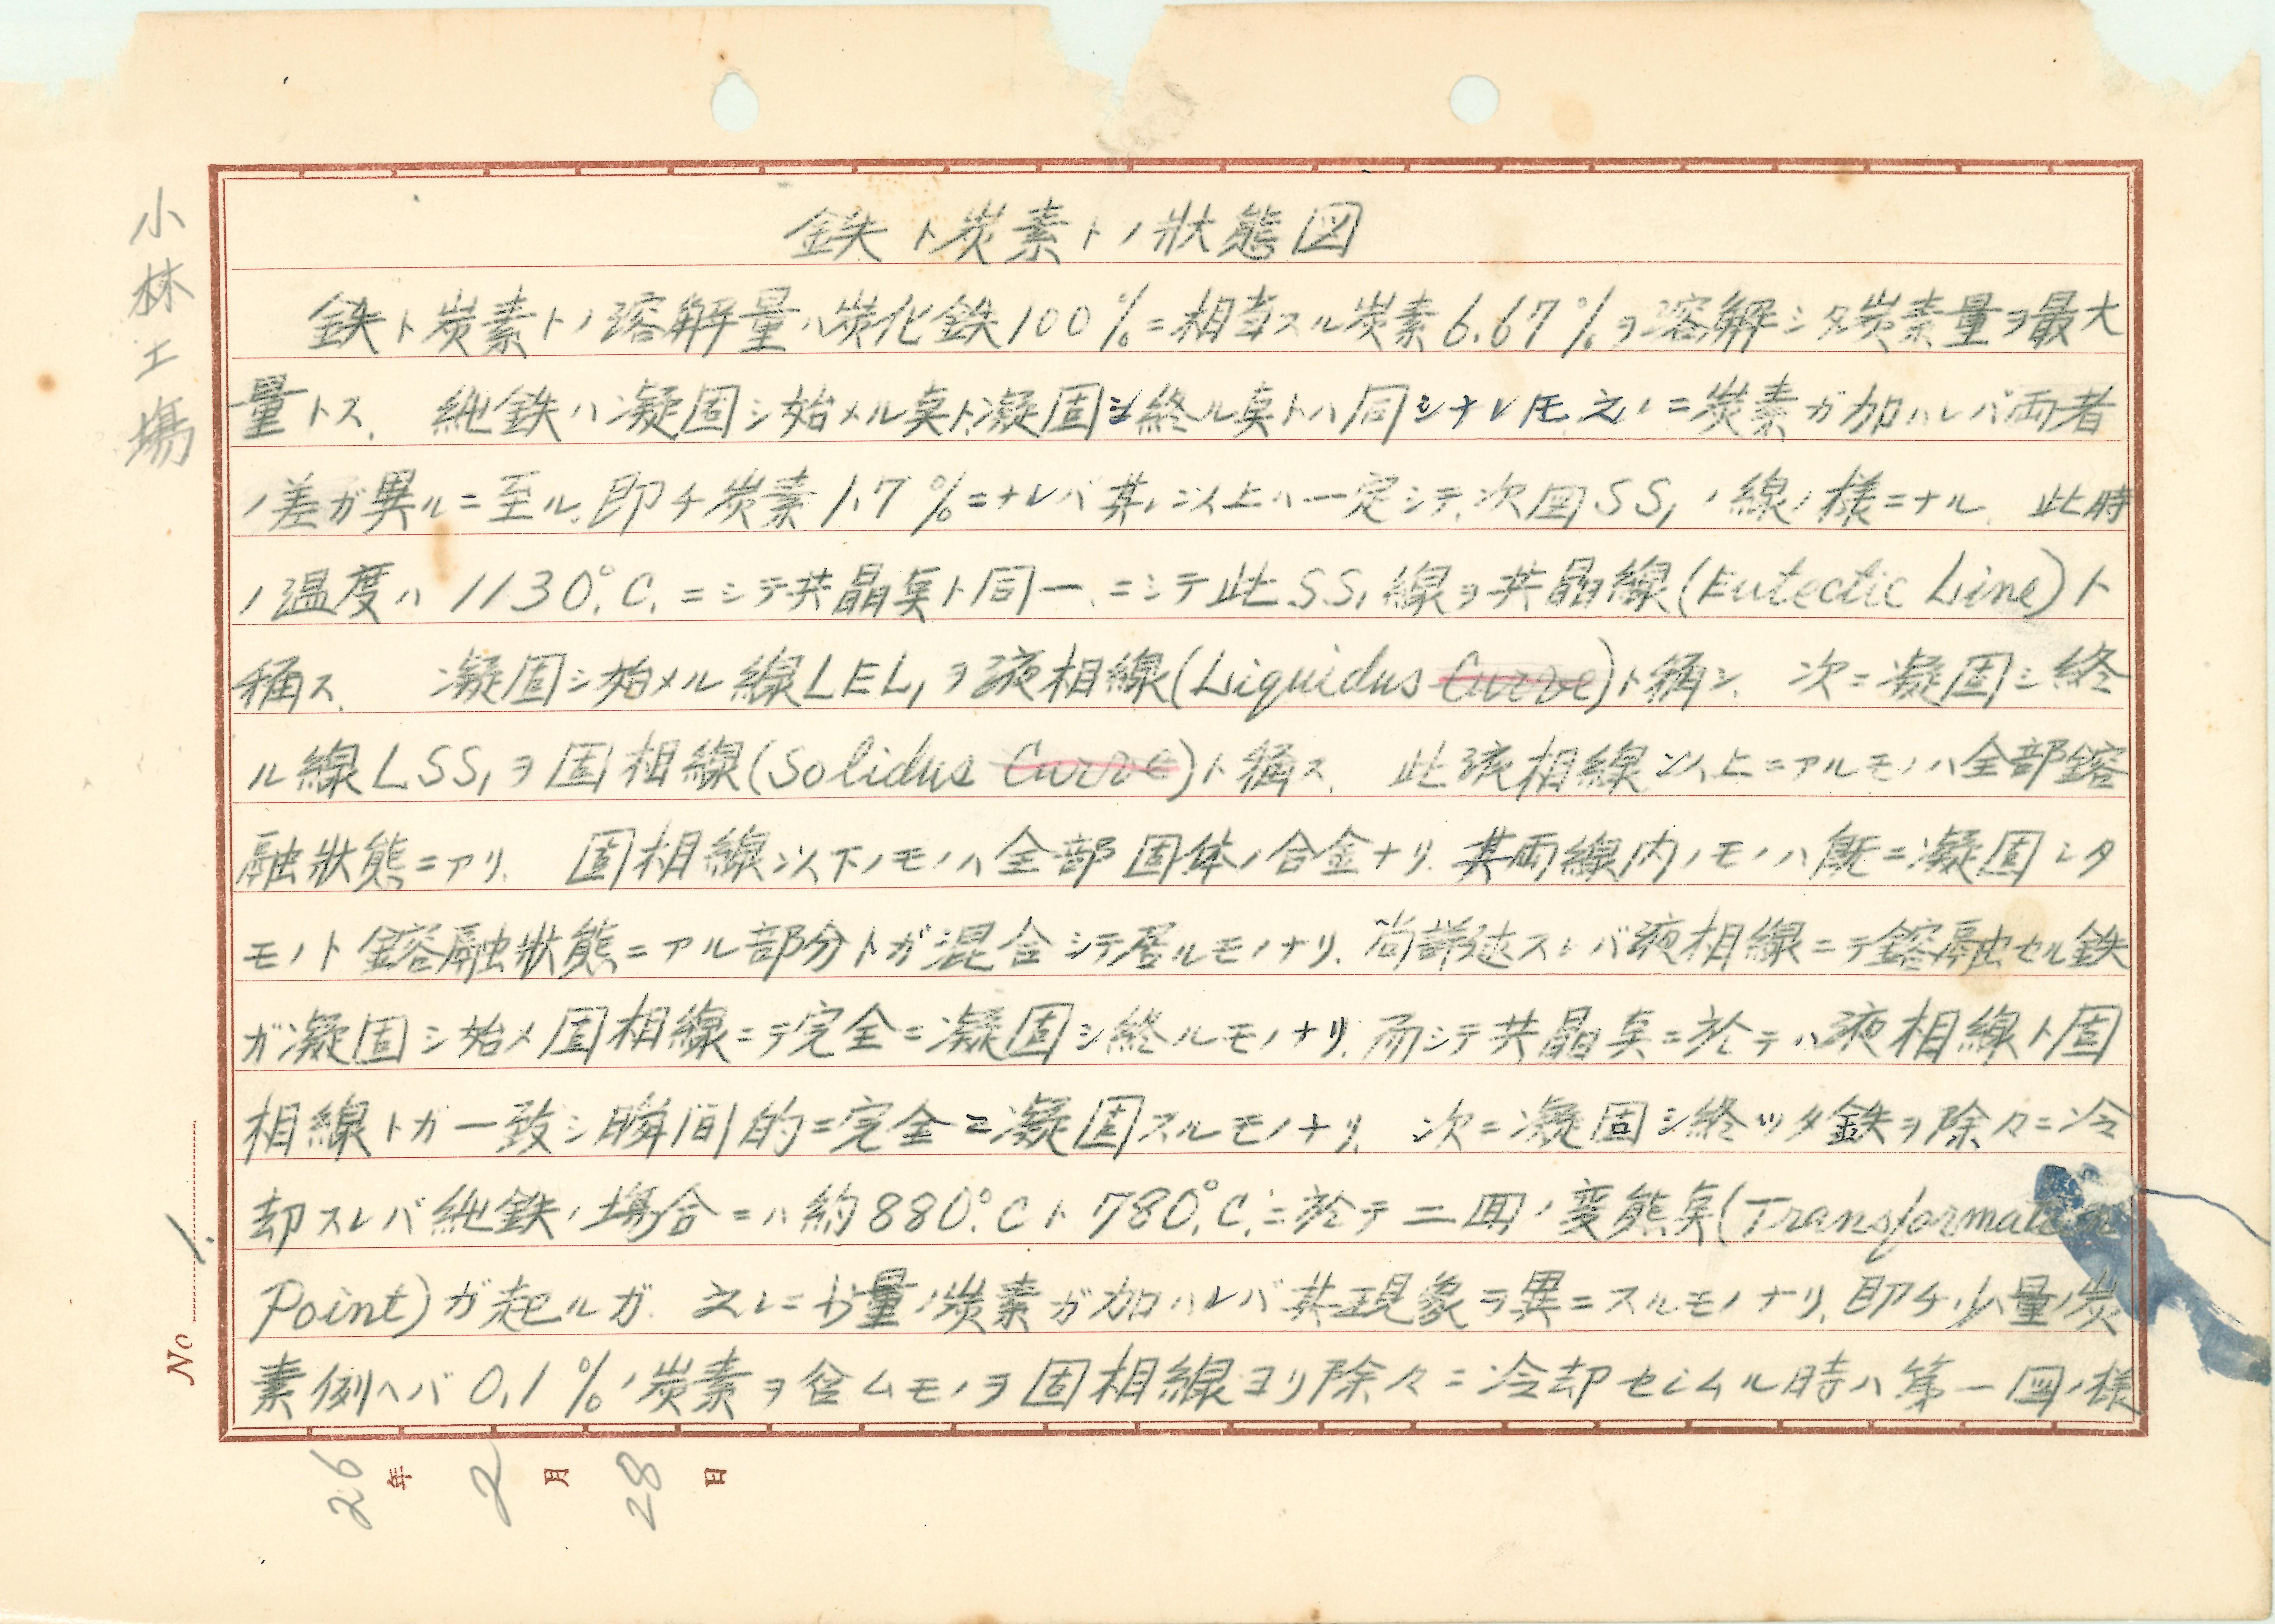 小林工場
鉄ト炭素トノ狀態図
鉄ト炭素トノ溶解量ハ炭化鉄100%ニ相当スル炭素6.67%ヲ溶解シタ炭素量ヲ最大
量トス、純鉄ハ凝固シ始メル点ト凝固シ終ル点トハ同シナレ𪜈之レニ炭素ガ加ハレバ両者
ノ差ガ異ルニ至ル、即チ炭素1.7%ニナレバ其レ以上ハ一定シテ、次図SS₁ノ線ノ様ニナル、此時
ノ温度ハ1130°C.ニシテ共晶点ト同一、ニシテ此SS₁線ヲ共晶線(Eutectic Line)ト
稱ス、凝固シ始メル線LEL₁ヲ液相線(Liquidus Curve)ト稱シ、次ニ凝固シ終
ル線LSS₁ヲ固相線(Solidus Curve)ト稱ス、此液相線以上ニアルモノハ全部鎔
融狀態ニアリ、固相線以下ノモノハ全部固体ノ合金ナリ、其両線内ノモノハ既ニ凝固シタ
モノト鎔融狀態ニアル部分トガ混合シテ居ルモノナリ、尚詳述スレバ液相線ニテ鎔融セル鉄
ガ凝固シ始メ固相線ニテ完全ニ凝固シ終ルモノナリ、而シテ共晶点ニ於テハ液相線ト固
相線トガ一致シ瞬間的ニ完全ニ凝固スルモノナリ、次ニ凝固シ終ッタ鉄ヲ除々ニ冷
却スレバ純鉄ノ場合ニハ約880°Cト780°C.ニ於テ二回ノ変態点(Transformation
Point)ガ起ルガ、之レニ少量ノ炭素ガ加ハレバ其現象ヲ異ニスルモノナリ、即チ少量ノ炭
素例ヘバ0.1%ノ炭素ヲ含ムモノヲ固相線ヨリ除々ニ冷却セシムル時ハ第一図ノ様
No 1.
26年2月28日